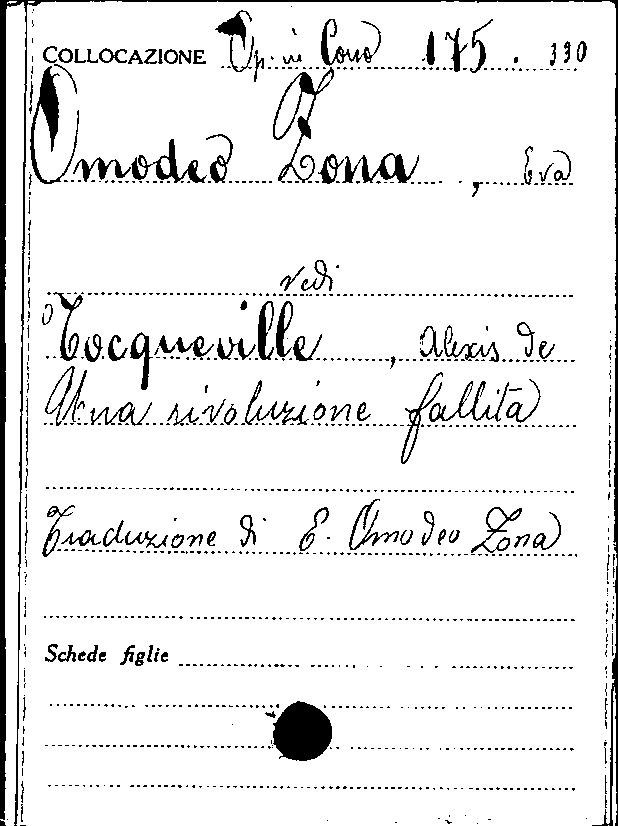 COLLOCAZIONE Op. in Cons 175. 330
Omodeo Zona, Eva
vedi
Tocqueville, Alexis de
Una rivoluzione fallita
Traduzione di E. Omodeo Zona
Schede figlie